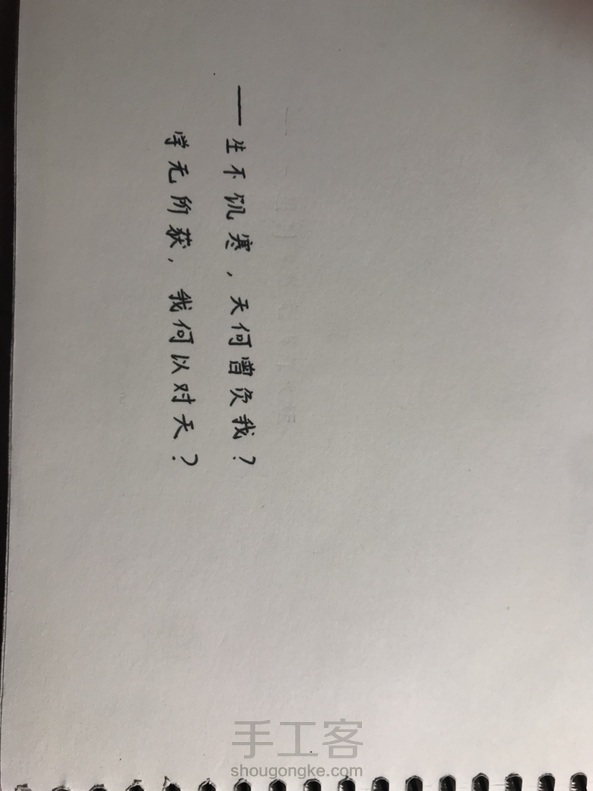 ——生不饥寒，天何曾负我？
学无所获，我何以对天？
手工客
shougongke.com